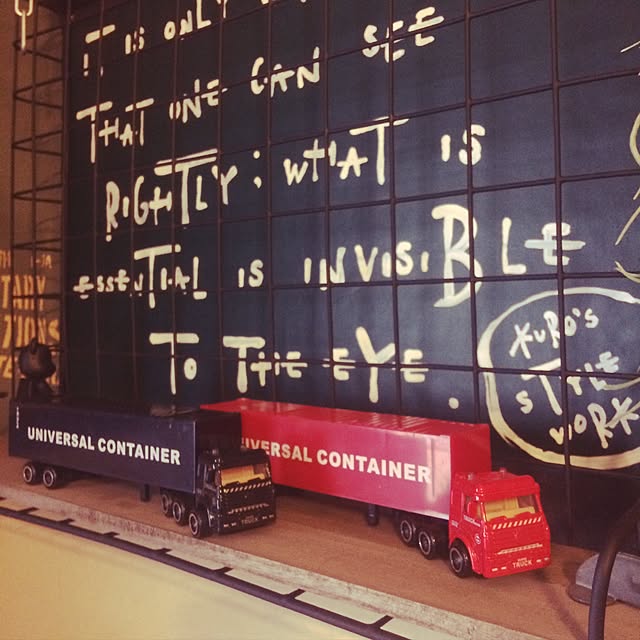 IT IS ONLY
THAT ONE CAN SEE
RIGHTLY; WHAT IS
ESSENTIAL IS INVISIBLE
TO THE EYE.
KURO'S
STYLE
WORK
UNIVERSAL CONTAINER
UNIVERSAL CONTAINER
TRUCK